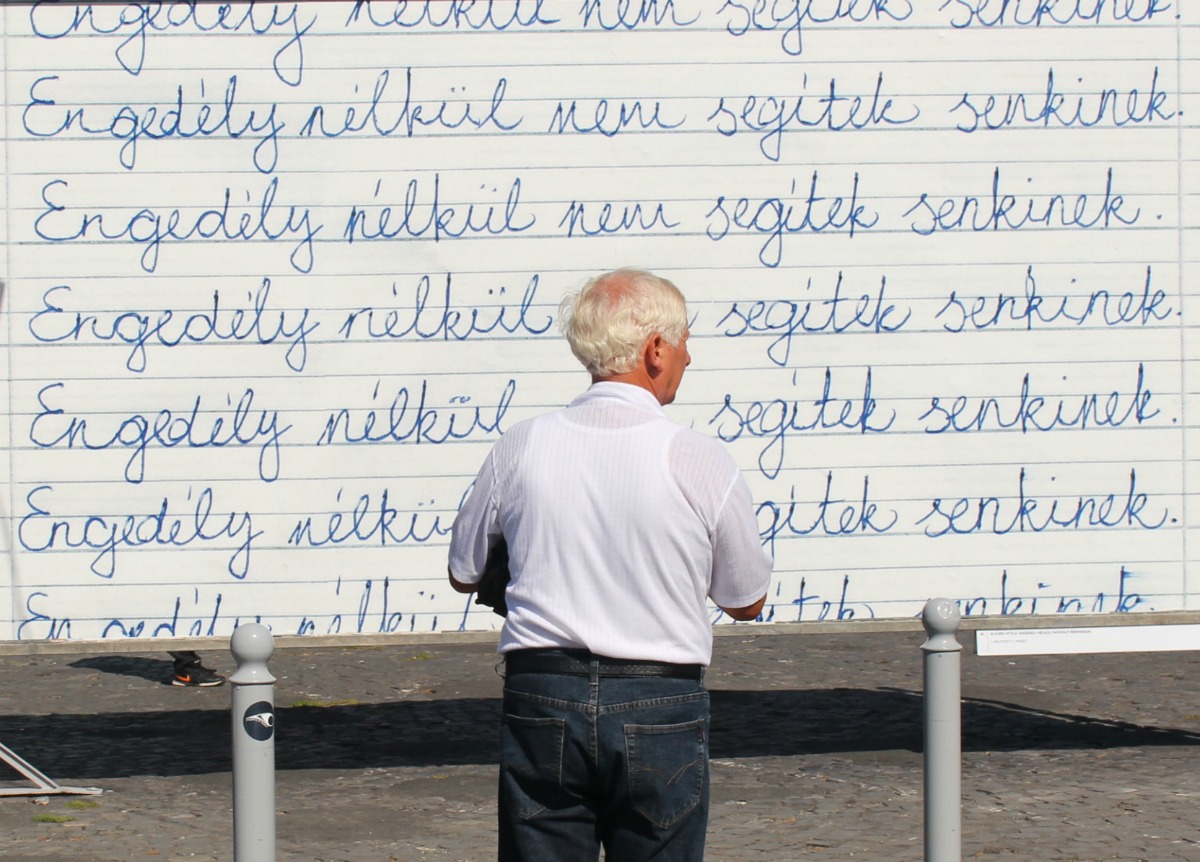 Engedély nélkül nem segítek senkinek.
Engedély nélkül nem segítek senkinek.
Engedély nélkül nem segítek senkinek.
Engedély nélkül segítek senkinek.
Engedély nélkül segítek senkinek.
Engedély senkinek.